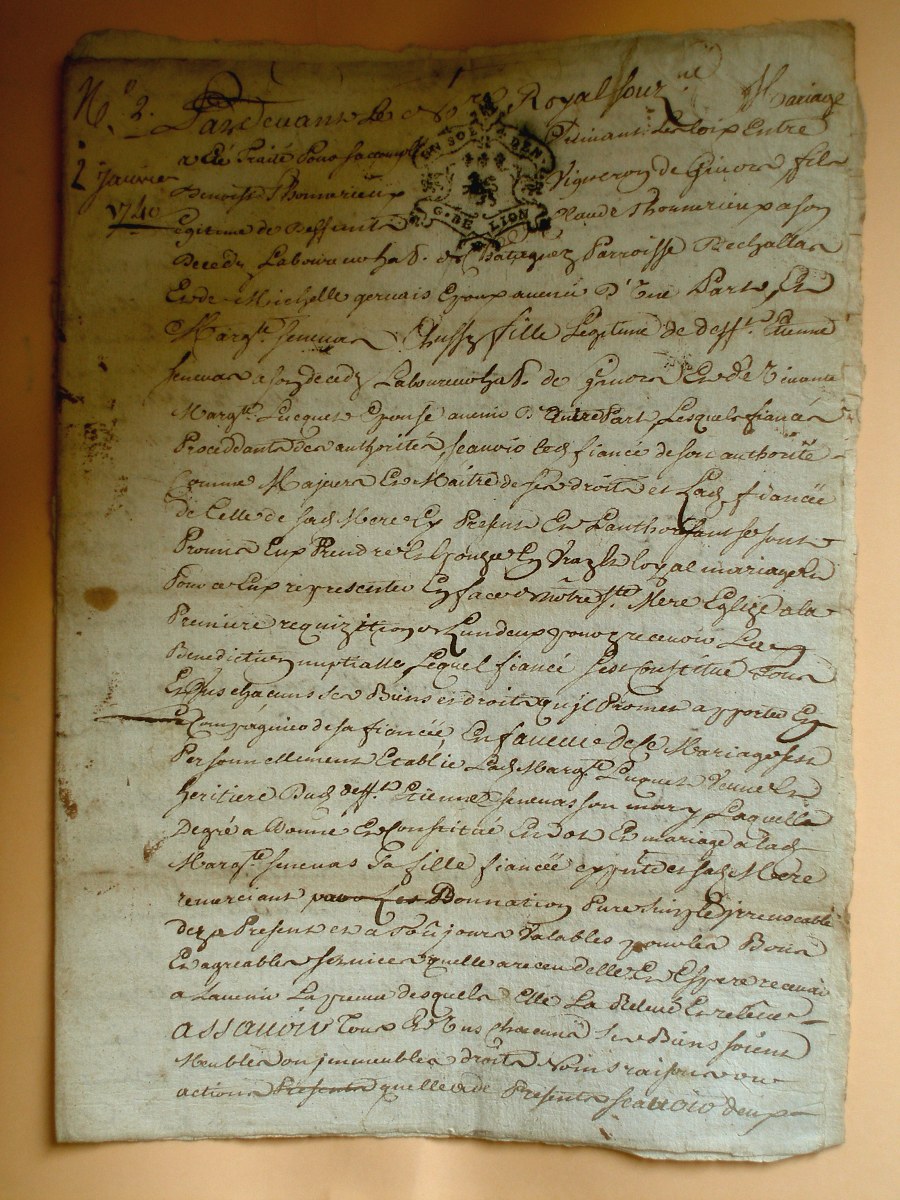 N.° 2. Pardevant Le Royal Mariage
2 janvier a Eté Traité Pour Suivant Les loix Entre
1740 Benoist Thomarieux Vigneron de Givors fils
UN SOL DEN.
G. DE LION
Legitime de Deffunt Claude Thomarieux a son
Decedz Laboureur hat. de Parroisse D'Echallas
Et de Michelle gervais Epoux avenir D'Une Part, Et
Marg.te senevas Aussy fille Legitime de deff.t Etienne
senevas a son decedz Laboureur hat. de Givors Et de Vivante
Marg.te Lucquet Epouse avenir D'Autre Part, Lesquels fiancés
Proceddants des authorités, scavoir led. fiancé de son authorité
Comme Majeur Et Maitre de ses droits et Lad. fiancée
de Celle de sad. Mere Ey Presente Et L'authorisant se sont
Promis Eux Prendre En Epouze En Vray et loyal mariage Et
Pour ce Eux representer En face de nôtre S.te Mere Eglize a la
Premiere requizition de L'un deux pour y recevoir La
Benediction nuptialle, Lequel fiancé s'est Constitué Tous
Et Uns chacuns ses Biens et droits qu'jl Promet apporter En
Compagnie de sa fiancée, En faveur De Ce Mariage s'est
Personnellement Etablie Lad. Marg.te Luquet Veuve Et
heritiere Dud. deff.t Etienne senevas son mary Laquelle
De gré a Donné Et Constitué En dot En mariage a lad.
Marg.te senevas Sa fille fiancée cy pnte et sad. Mere
remerciant par Donnation Pure simple jrrevocable
dez a Present et a Toujours Valables pour les Bons
Et agreables services quelle a receu delle Et Espere recevoir
a L'avenir La preuve desquels Elle La Relevé Et releve
assavoir Tous Et Uns chacuns ses Biens soient
Meubles ou jmmeubles droits Noms raisons ou
actions Presents quelle a de Presents scavoir deux